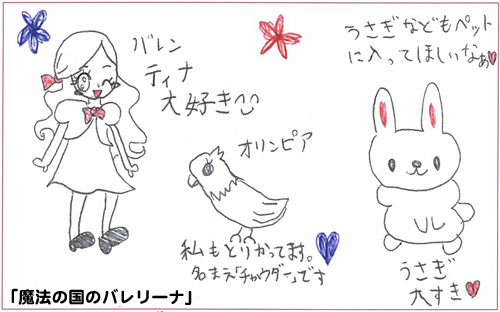 バレン
ティナ
大好き
オリンピア
私もとりかってます。
名まえ「チャウダー」です
うさぎなどもペット
に入ってほしいなぁ
うさぎ
大すき
「魔法の国のバレリーナ」